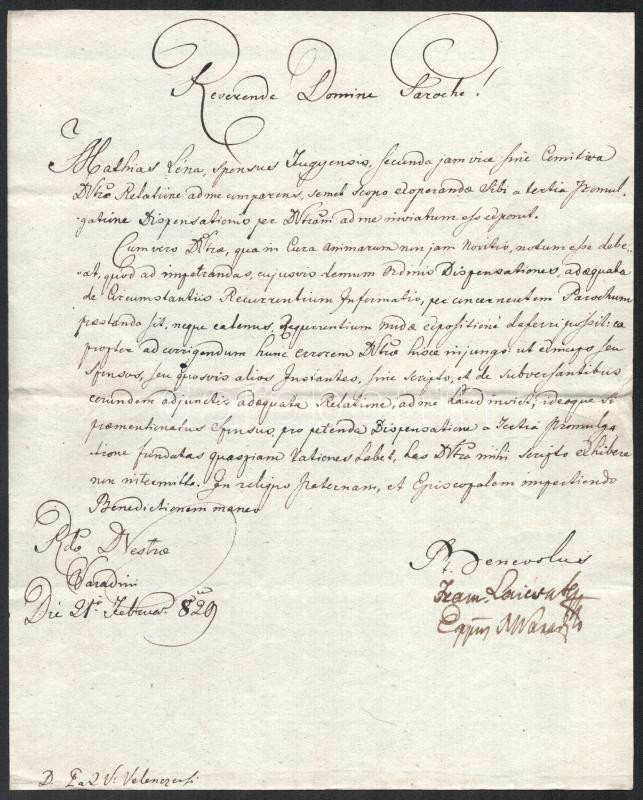 Reverende Domine Paroche!
Mathias Léna, sponsus Jugyensis, secunda jam vice sine Comitiva
Dvtrae Relatione ad me comparens, semet scopo exoperandae Sibi a tertia Promul-
gatione Dispensationis per Dvtram ad me inviatum esse exponit.
Cum vero Dvtrae, qua in Cura animarum non jam Novitio, notum esse debe-
at, quod ad impetrandas, cujusvis demum Ordinis Dispensationes, adaequata
de Circumstantiis Recurrentium Informatio, per concernentem Parochum
praestanda sit, neque eatenus, Recurrentium nudae expositioni deferri possit: ea
propter ad corrigendum hunc errorem Dvtrae hisce injungo: ut e improviso seu
sponsos, seu quosvis alios Instantes, sine scripto, et de subversantibus
eorundem adjunctis adaequata Relatione, ad me haud inviet; ideoque si
praementionatus Sponsus, pro petenda Dispensatione a Tertia Promulga
tione fundatas quaspiam rationes habet, has Dvtra mihi scripto exhibere
non intermittat. In reliquo fraternam, et Episcopalem impertiendo
Benedictionem maneo
Rdae DVestrae
Varadini
Die 21a Februar. 829
Ad benevolus
Fran. Laicsak
Eppus MVarad
D. P a 2 V: Velenczensi